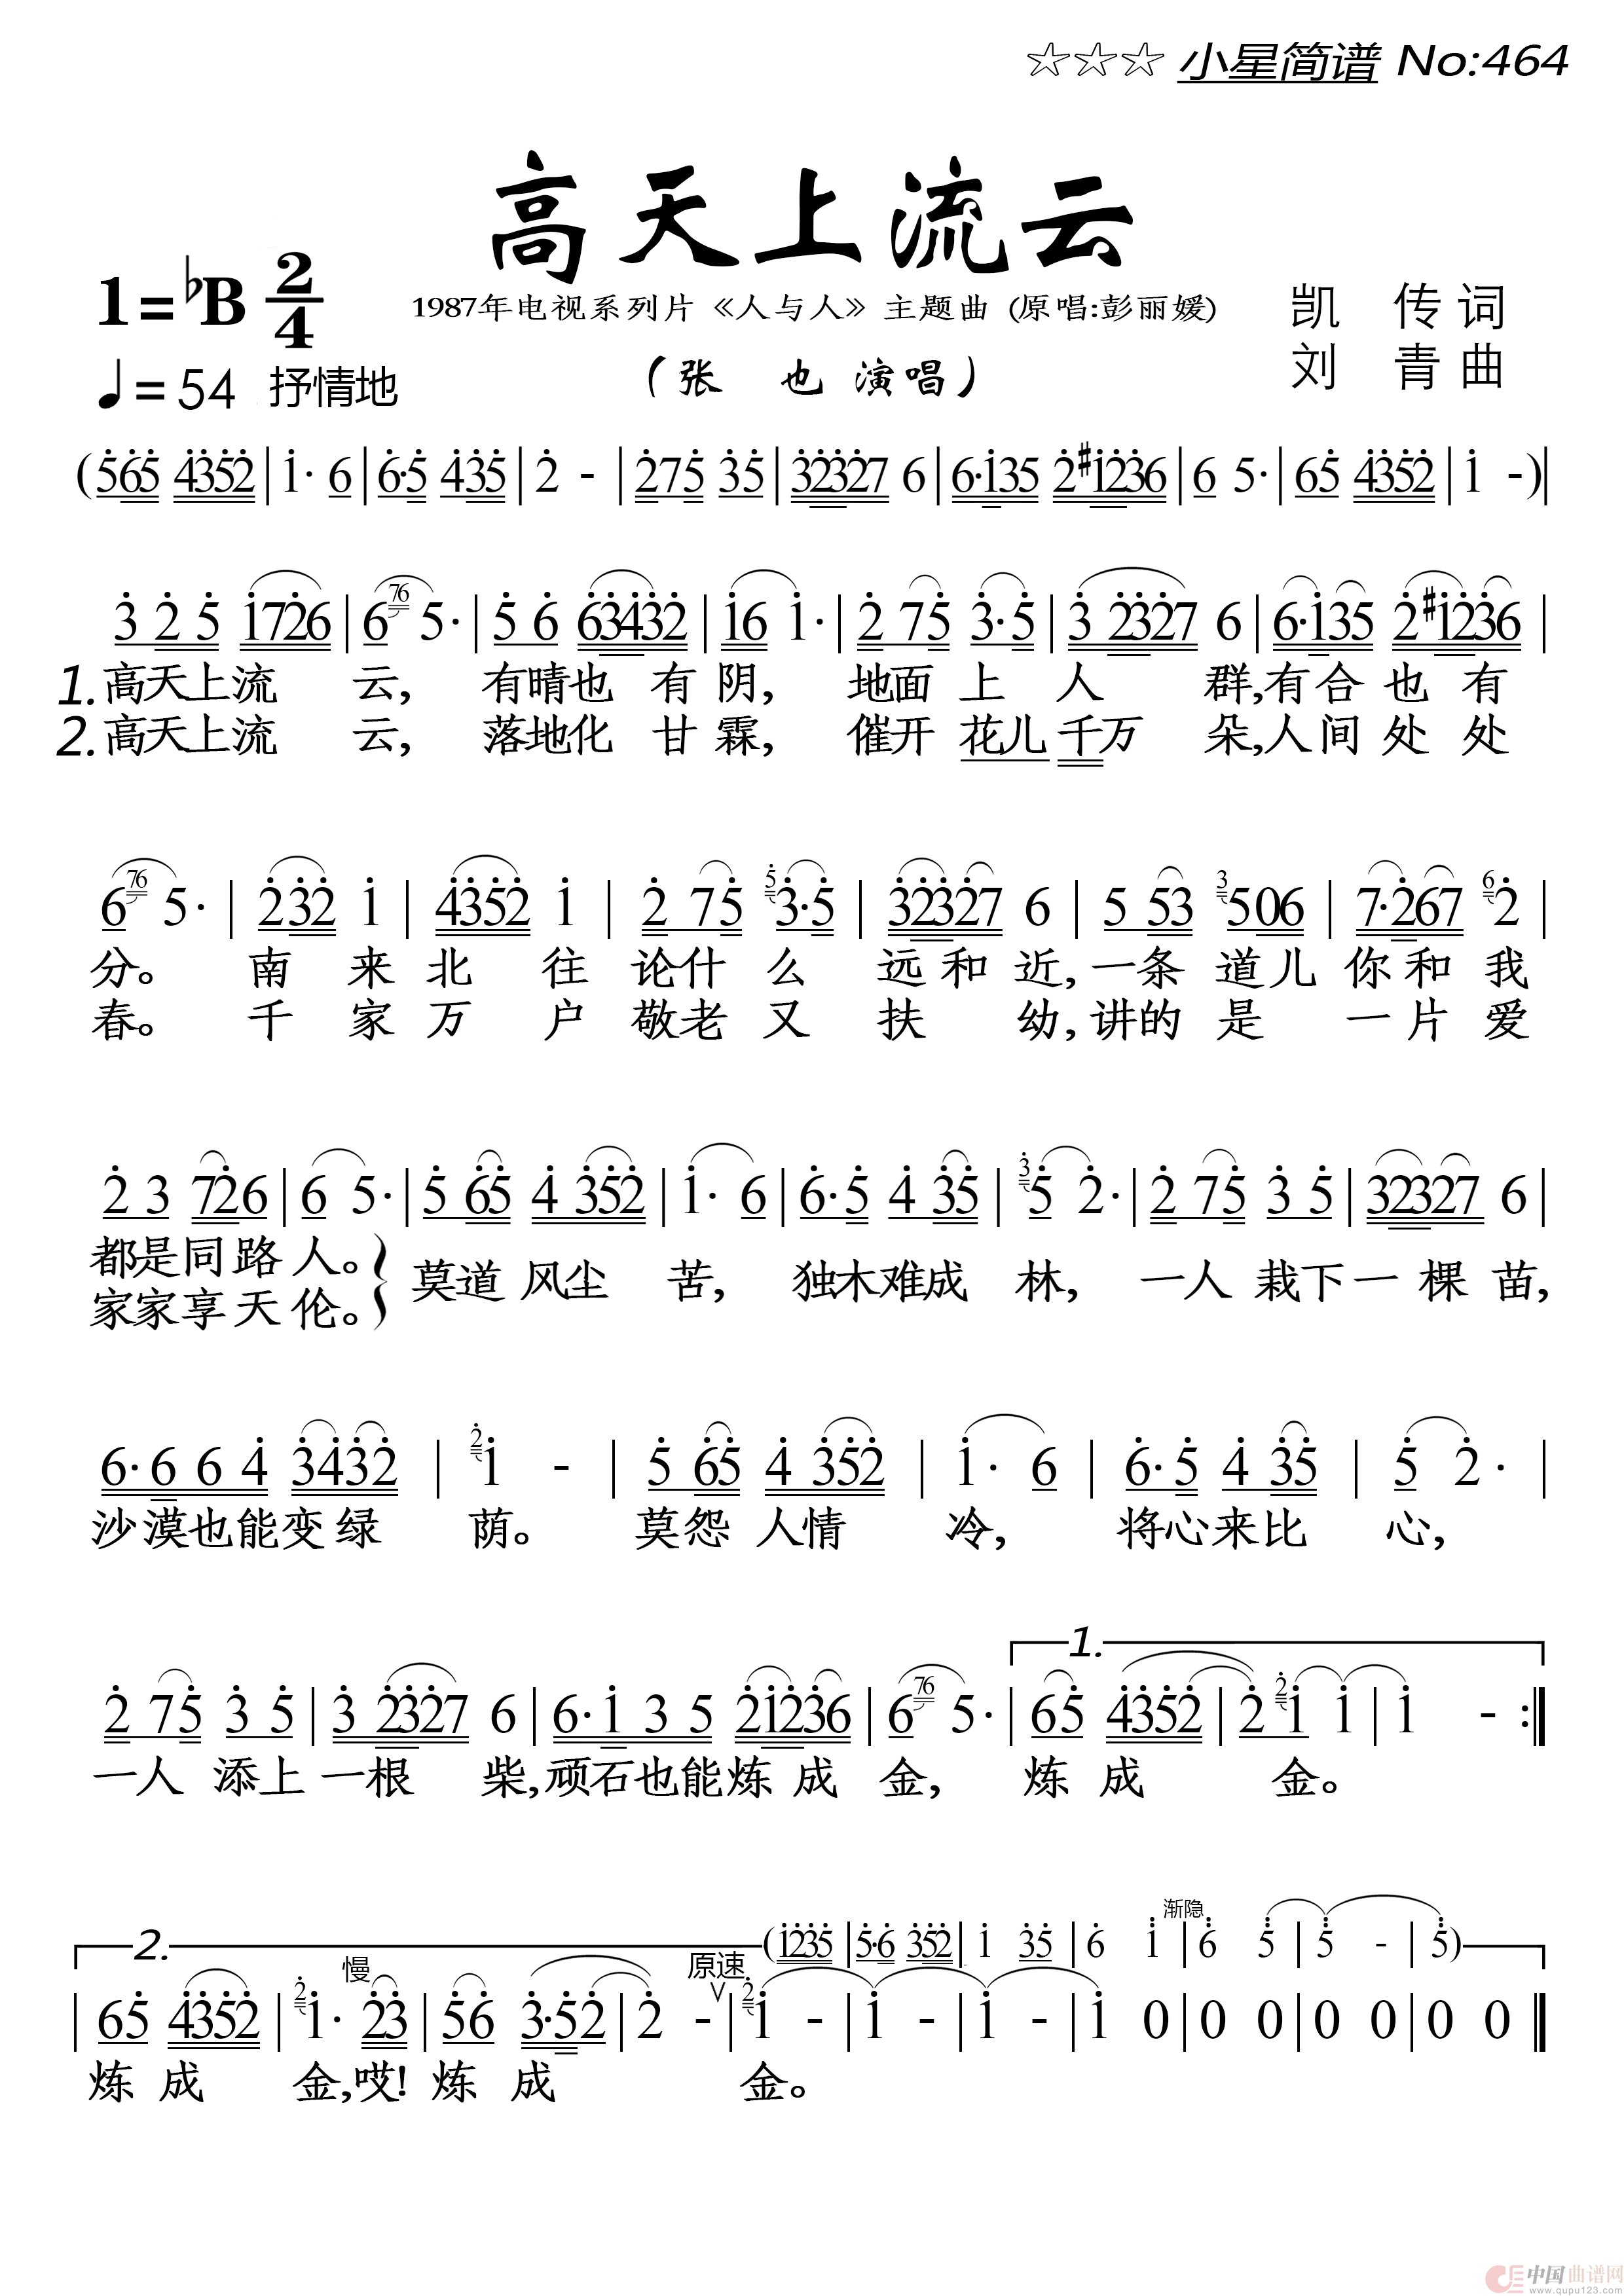 ☆☆☆ 小星简谱 No:464
高天上流云
1=♭B 2/4
1987年电视系列片《人与人》主题曲 (原唱:彭丽媛)
凯 传 词
♩=54 抒情地
(张 也 演唱)
刘 青 曲
(565 4352 | 1· 6 | 6·5 435 | 2 - | 275 35 | 32327 6 | 6·135 2#1236 | 6 5· | 65 4352 | 1 -)|
3 2 5 1726 | 6 76 5· | 5 6 63432 | 16 1· | 2 75 3·5 | 3 2327 6 | 6·135 2#1236 |
1.高天上流 云, 有晴也 有 阴, 地面 上 人 群,有合也 有
2.高天上流 云, 落地化 甘 霖, 催开 花儿 千万 朵,人间处 处
6 76 5· | 232 1 | 4352 1 | 2 75 5 3·5 | 32327 6 | 5 53 3 506 | 7·267 6 2 |
分。 南 来 北 往 论什 么 远和近,一条 道儿 你和 我
春。 千 家 万 户 敬老 又 扶 幼,讲的 是 一片 爱
2 3 726 | 6 5· | 5 65 4 352 | 1· 6 | 6·5 4 35 | 3 5 2· | 2 75 3 5 | 32327 6 |
都是同路 人。 莫道 风尘 苦, 独木难成 林, 一人 栽下一棵 苗,
家家享天 伦。
6·6 6 4 3432 | 2 1 - | 5 65 4 352 | 1· 6 | 6·5 4 35 | 5 2· |
沙漠也能变绿 荫。 莫怨 人情 冷, 将心来比 心,
1.
2 75 3 5 | 3 2327 6 | 6·1 3 5 21236 | 6 76 5· | 65 4352 | 2 2 1 1 | 1 - :‖
一人 添上一根 柴,顽石也能炼 成 金, 炼 成 金。
渐隐
2. (1235 | 5·6 352 | 1 35 | 6 1 | 6 5 | 5 - | 5)
慢 原速
| 65 4352 | 2 1· 23 | 56 3·52 | 2 -∨ | 2 1 - | 1 - | 1 - | 1 0 | 0 0 | 0 0 | 0 0 ‖
炼 成 金,哎!炼 成 金。
中国曲谱网
www.qupu123.com